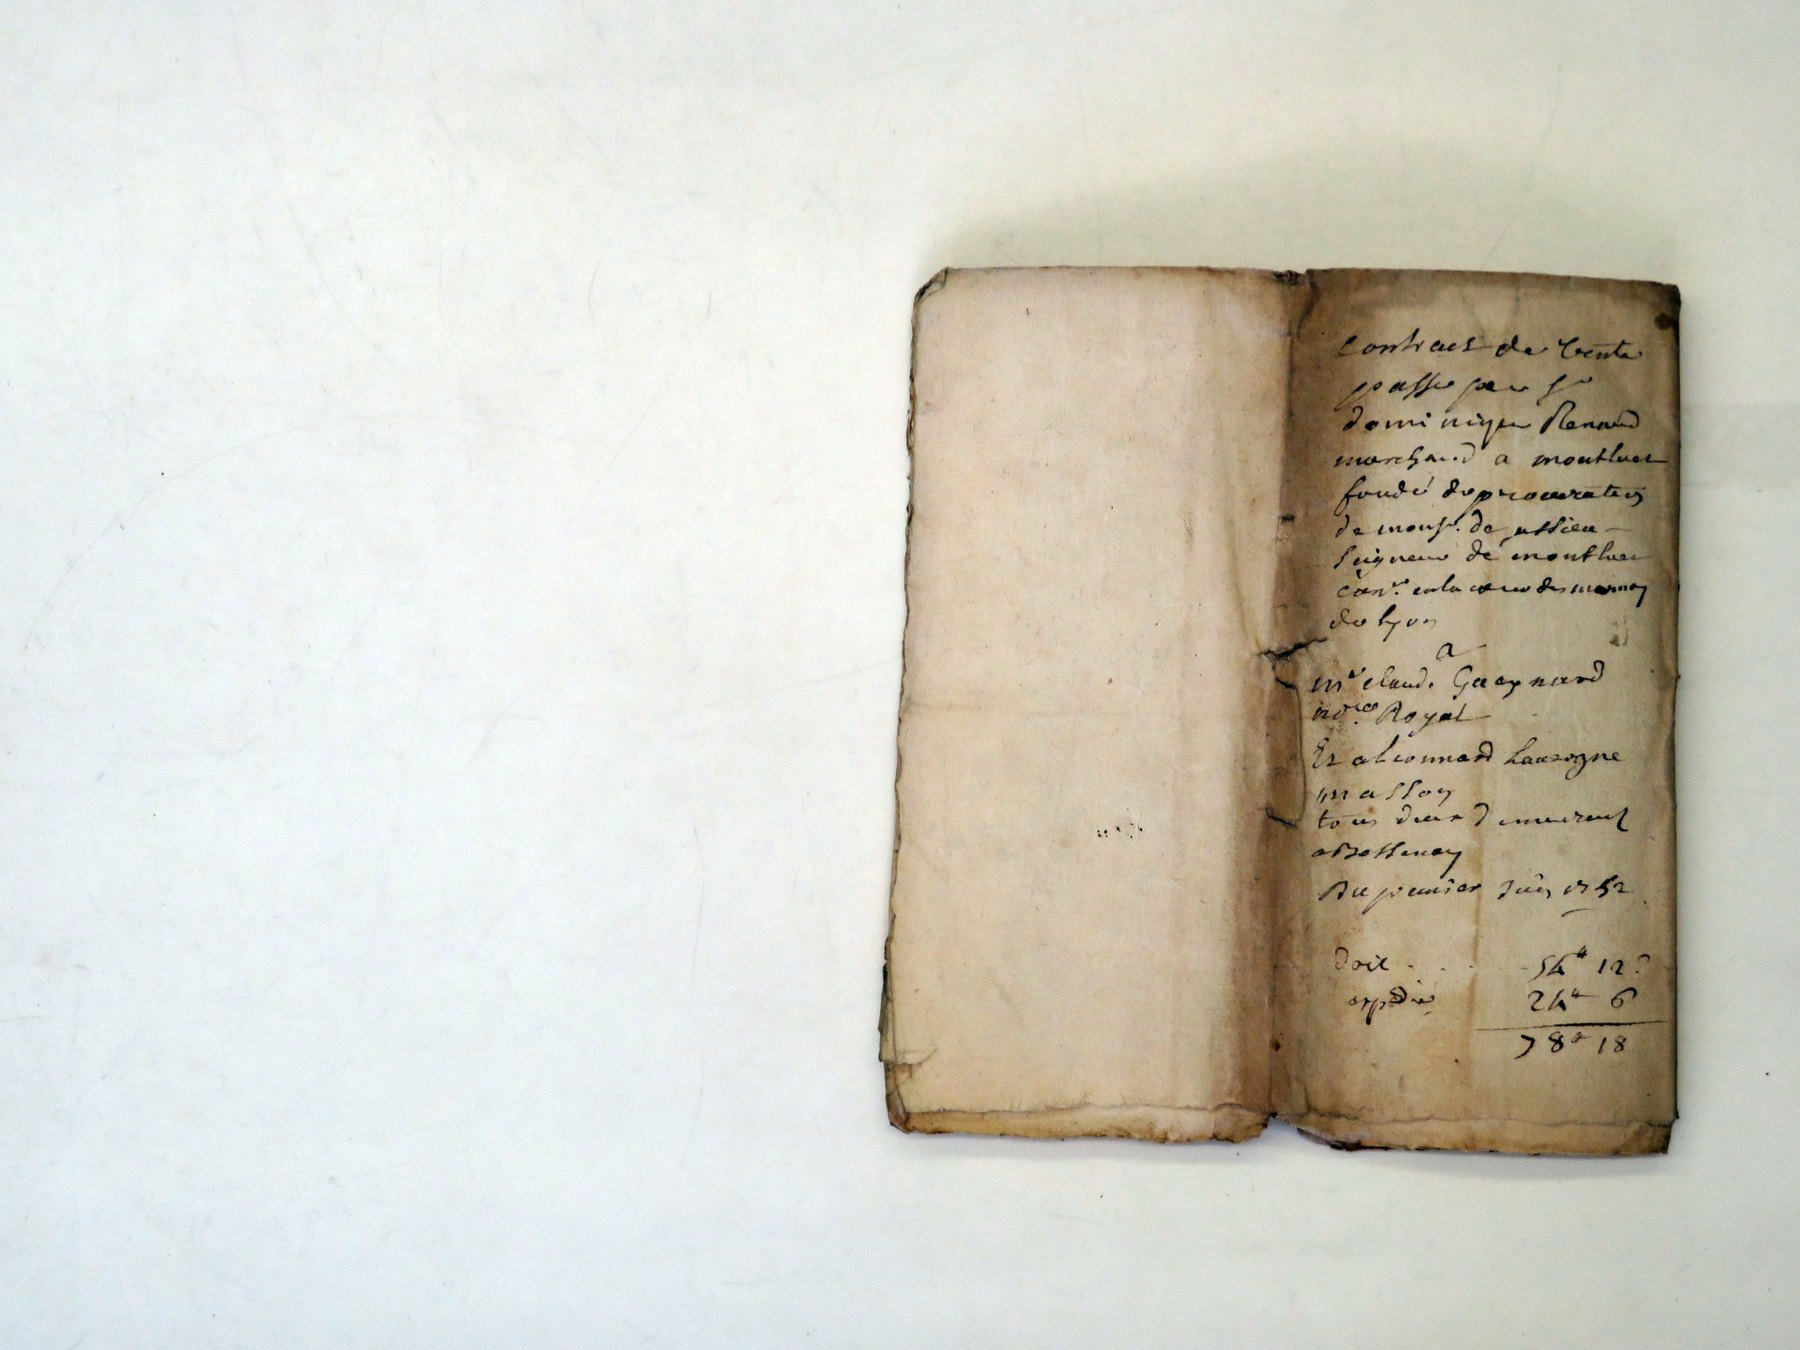 Contract de vente
passé par sr
dominique Renaud
marchand a montluel
fondé de procuration
de monsr. de
seigneur de montluel
conr. en la cour des monnoy
de lyon
a
mr claude Gueynard
nore Royal
Et a leonnard Lauzogne
masson
tous deux demeurent
a Bessenay
Du premier Juin 1752
doit . . 54# 12 s
expedie 24# 6
78# 18